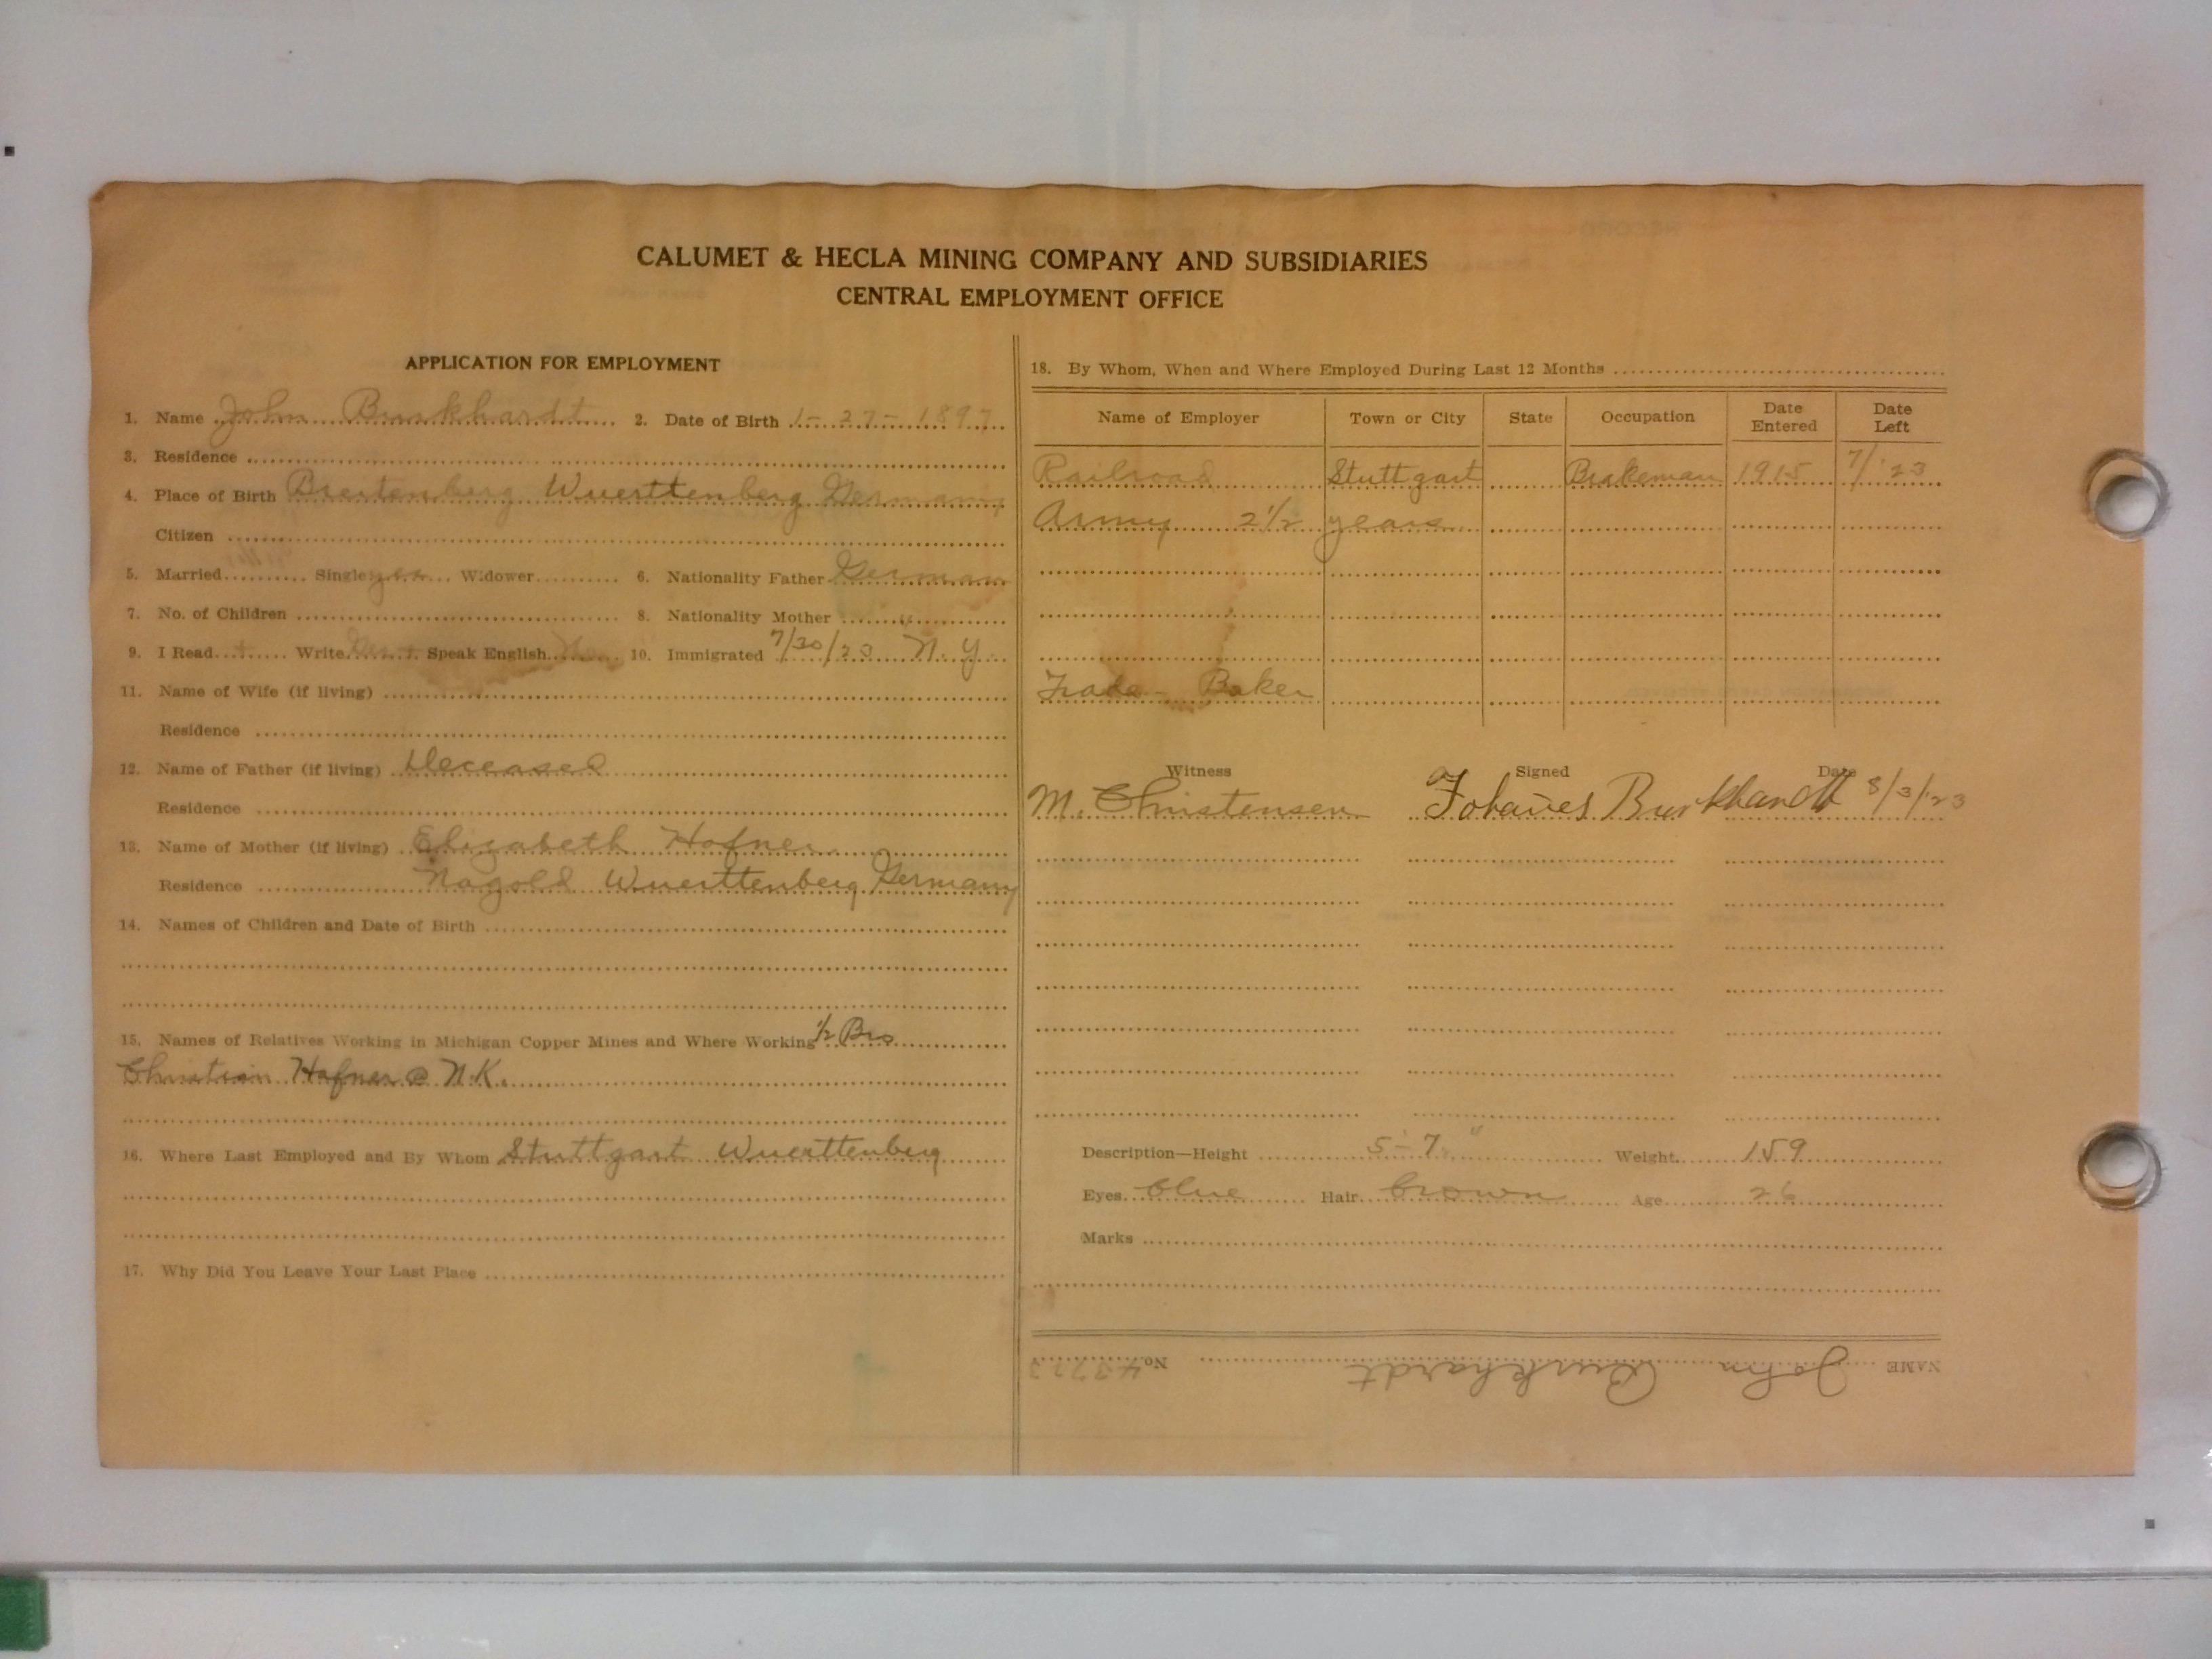 CALUMET & HECLA MINING COMPANY AND SUBSIDIARIES
CENTRAL EMPLOYMENT OFFICE
APPLICATION FOR EMPLOYMENT
1. Name John Burkhardt 2. Date of Birth 1-27-1897
3. Residence
4. Place of Birth Breitenberg Wuerttenberg Germany
Citizen
5. Married Single yes Widower 6. Nationality Father German
7. No. of Children 8. Nationality Mother "
9. I Read + Write Speak English 10. Immigrated 7/30/23 N.Y.
11. Name of Wife (if living)
Residence
12. Name of Father (if living) Deceased
Residence
13. Name of Mother (if living) Elizabeth Hafner
Residence Nagold Wuerttenberg Germany
14. Names of Children and Date of Birth
15. Names of Relatives Working in Michigan Copper Mines and Where Working 1/2 Bro
Christian Hafner @ N.K.
16. Where Last Employed and By Whom Stuttgart Wuerttenberg
17. Why Did You Leave Your Last Place
18. By Whom, When and Where Employed During Last 12 Months
Name of Employer Town or City State Occupation Date Entered Date Left
Railroad Stuttgart Brakeman 1915 7/'23
Army 2 1/2 years
Trade - Baker
Witness Signed Date
M. Christensen Johannes Burkhardt 8/3/'23
Description—Height 5'-7" Weight 159
Eyes blue Hair brown Age 26
Marks
NAME John Burkhardt No.